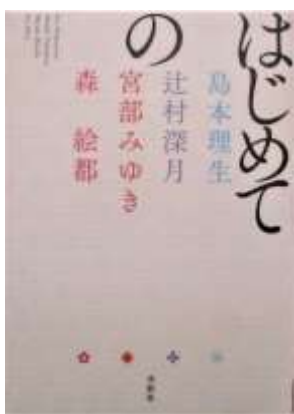 はじめて
の
島本理生
辻村深月
宮部みゆき
森 絵都